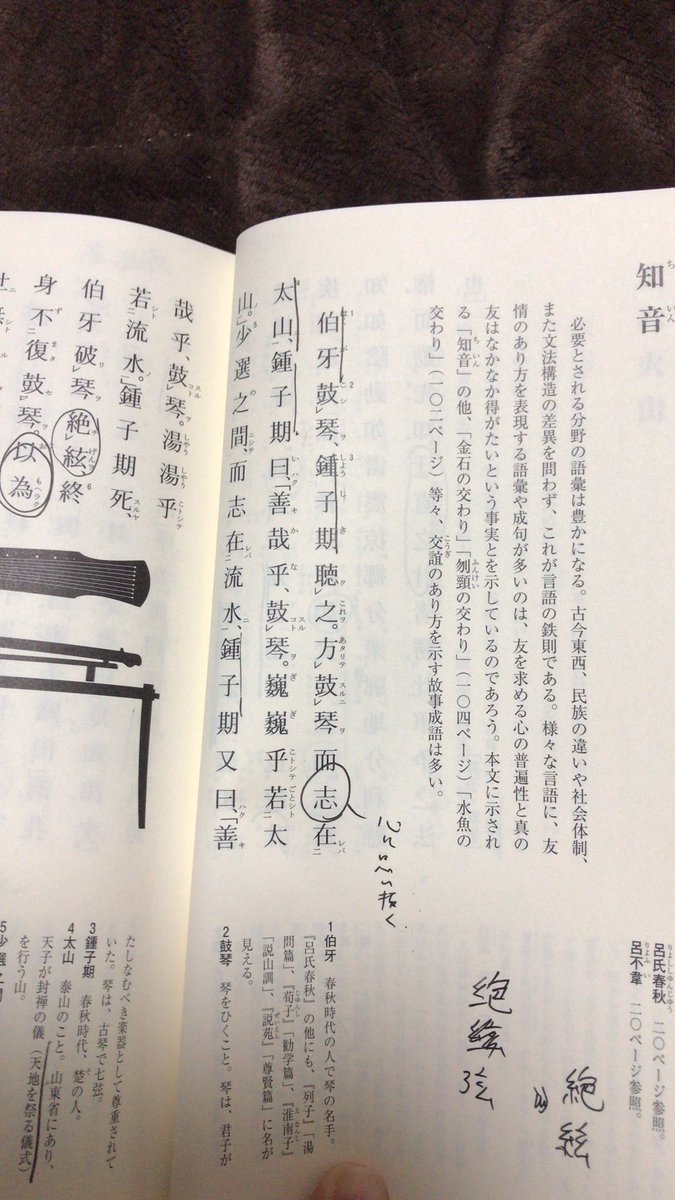 知音
ちいん
必要とされる分野の語彙は豊かになる。古今東西、民族の違いや社会体制、
また文法構造の差異を問わず、これが言語の鉄則である。様々な言語に、友
情のあり方を表現する語彙や成句が多いのは、友を求める心の普遍性と真の
友はなかなか得がたいという事実とを示しているのであろう。本文に示され
る「知音」の他、「金石の交わり」「刎頸の交わり」(一〇四ページ)「水魚の
交わり」(一〇二ページ)等々、交誼のあり方を示す故事成語は多い。
伯牙鼓琴、鍾子期聴之。方鼓琴而志在
太山、鍾子期曰、「善哉乎、鼓琴。巍巍乎若太
山。」少選之間而志在流水、鍾子期又曰、「善
哉乎、鼓琴。湯湯乎
若流水。」鍾子期死、
伯牙破琴絶絃、終
身不復鼓琴。以為
心に思い抜く
呂氏春秋 二〇ページ参照。
呂不韋 二〇ページ参照。
1伯牙 春秋時代の人で琴の名手。
『呂氏春秋』の他にも、『列子』「湯
問篇」、『荀子』「勧学篇」、『淮南子』
「説山訓」、『説苑』「尊賢篇」に名が
見える。
2鼓琴 琴をひくこと。琴は、君子が
たしなむべき楽器として尊重されて
いた。琴は、古琴で七弦。
3鍾子期 春秋時代、楚の人。
4太山 泰山のこと。山東省にあり、
天子が封禅の儀(天地を祭る儀式)
を行う山。
5少選之間
絶絃